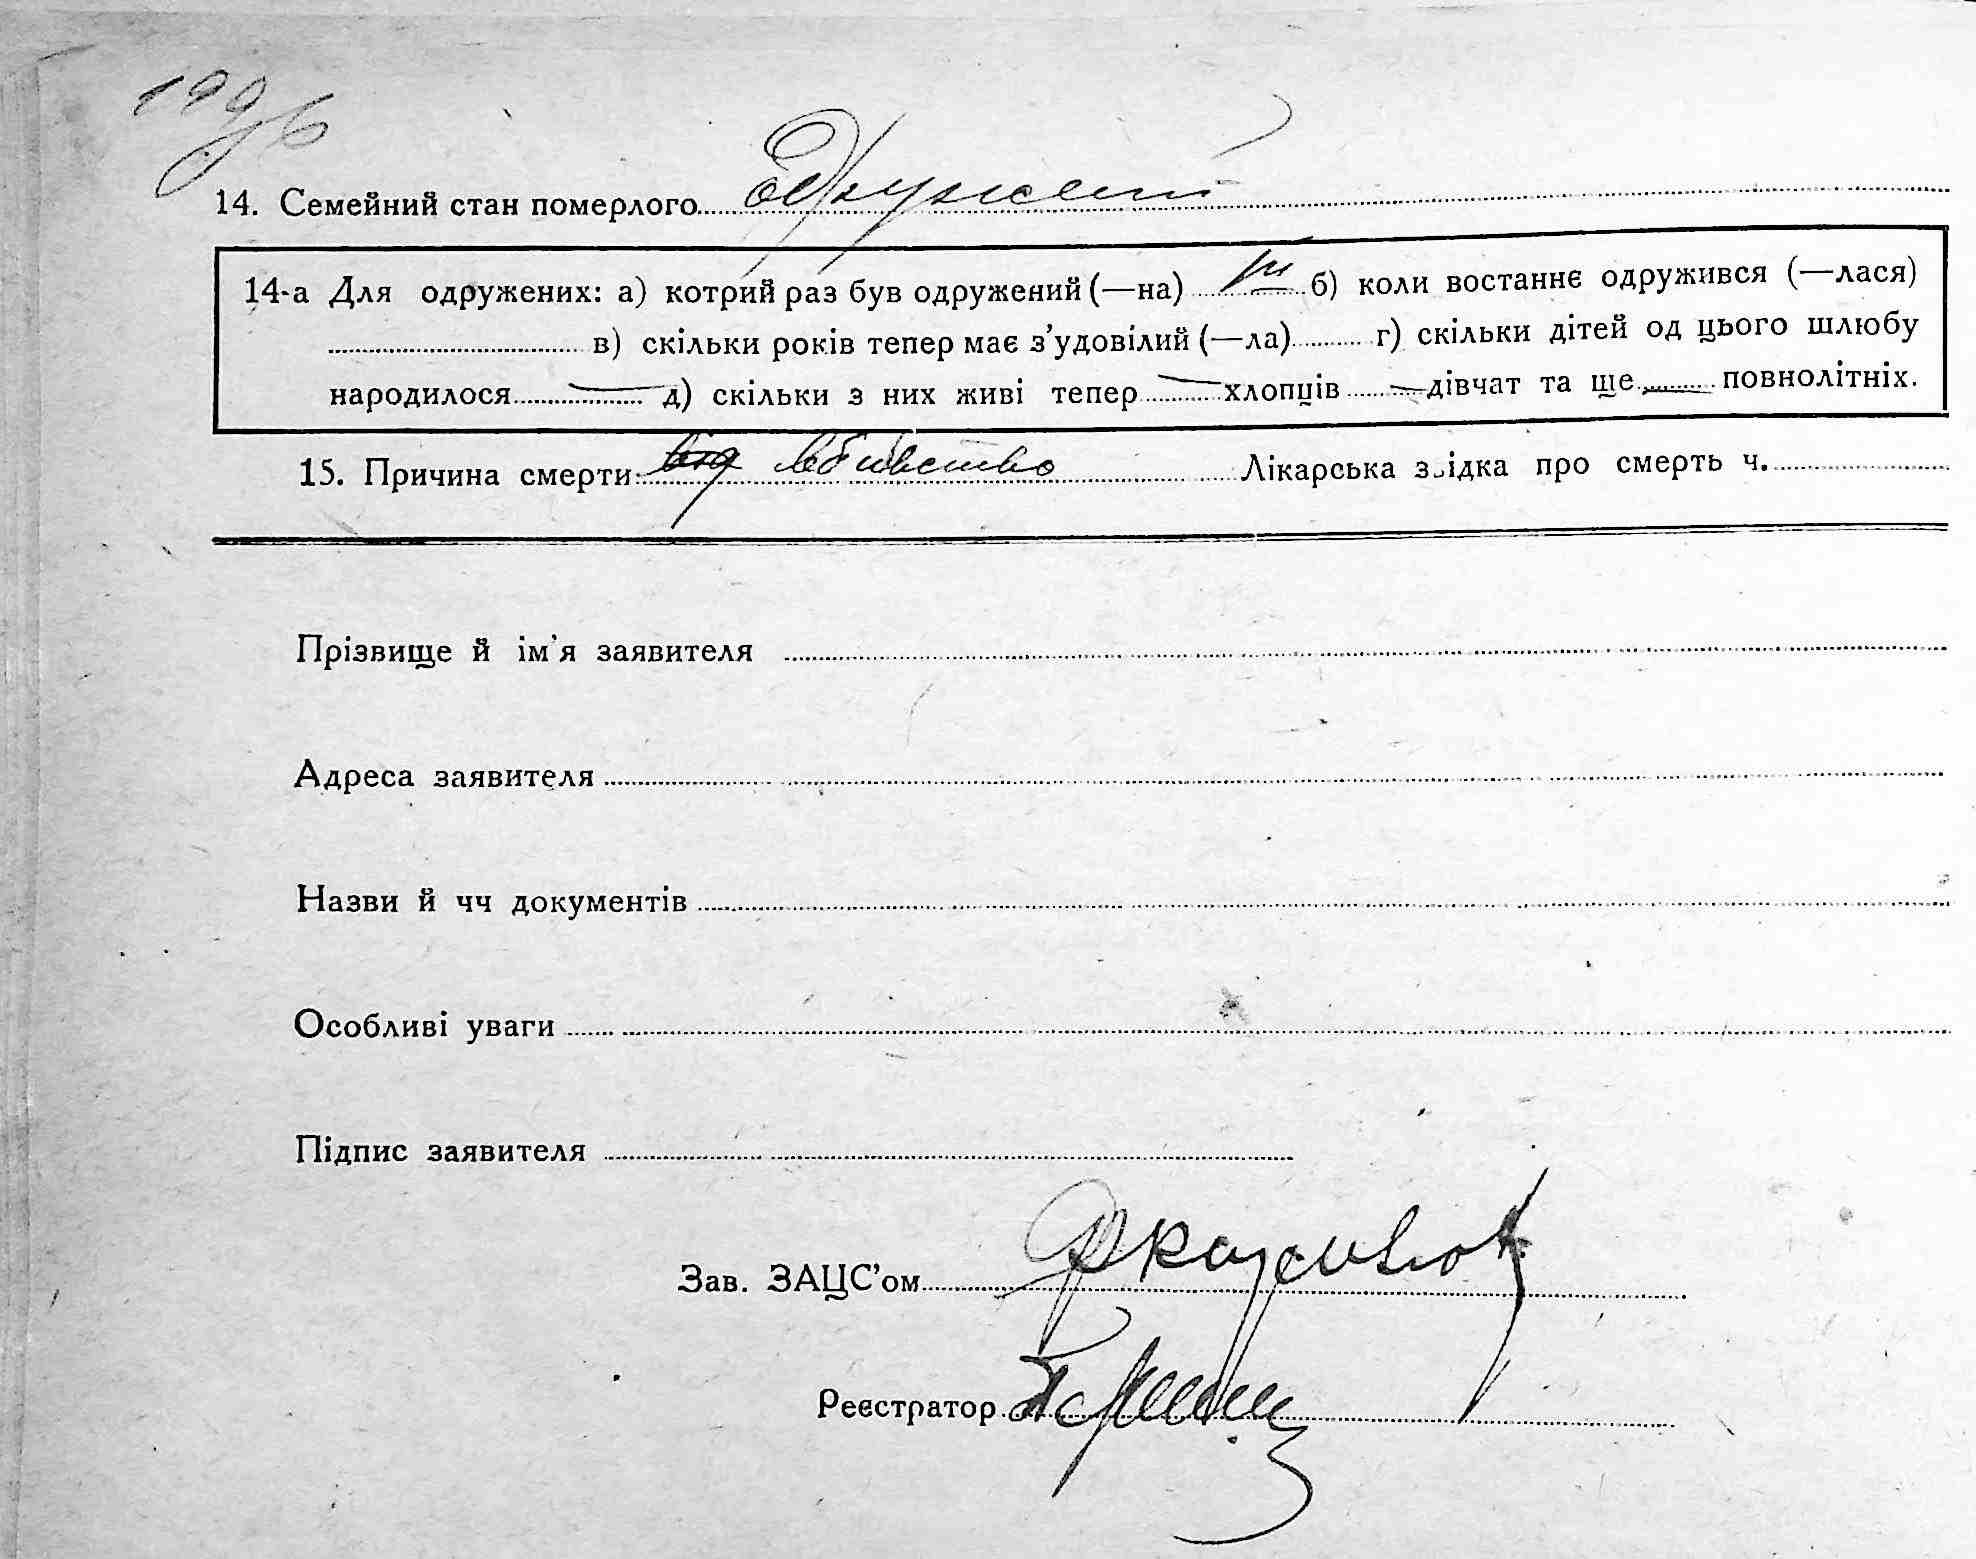 14. Семейний стан померлого одружений
14-а Для одружених: а) котрий раз був одружений (—на) б) коли востаннє одружився (—лася)
в) скільки років тепер має з’удовілий (—ла) г) скільки дітей од цього шлюбу
народилося д) скільки з них живі тепер хлопців дівчат та ще повнолітніх.
15. Причина смерти: від вбивство Лікарська звідка про смерть ч.
Прізвище й ім’я заявителя
Адреса заявителя
Назви й чч документів
Особливі уваги
Підпис заявителя
Зав. ЗАЦС’ом
Реєстратор